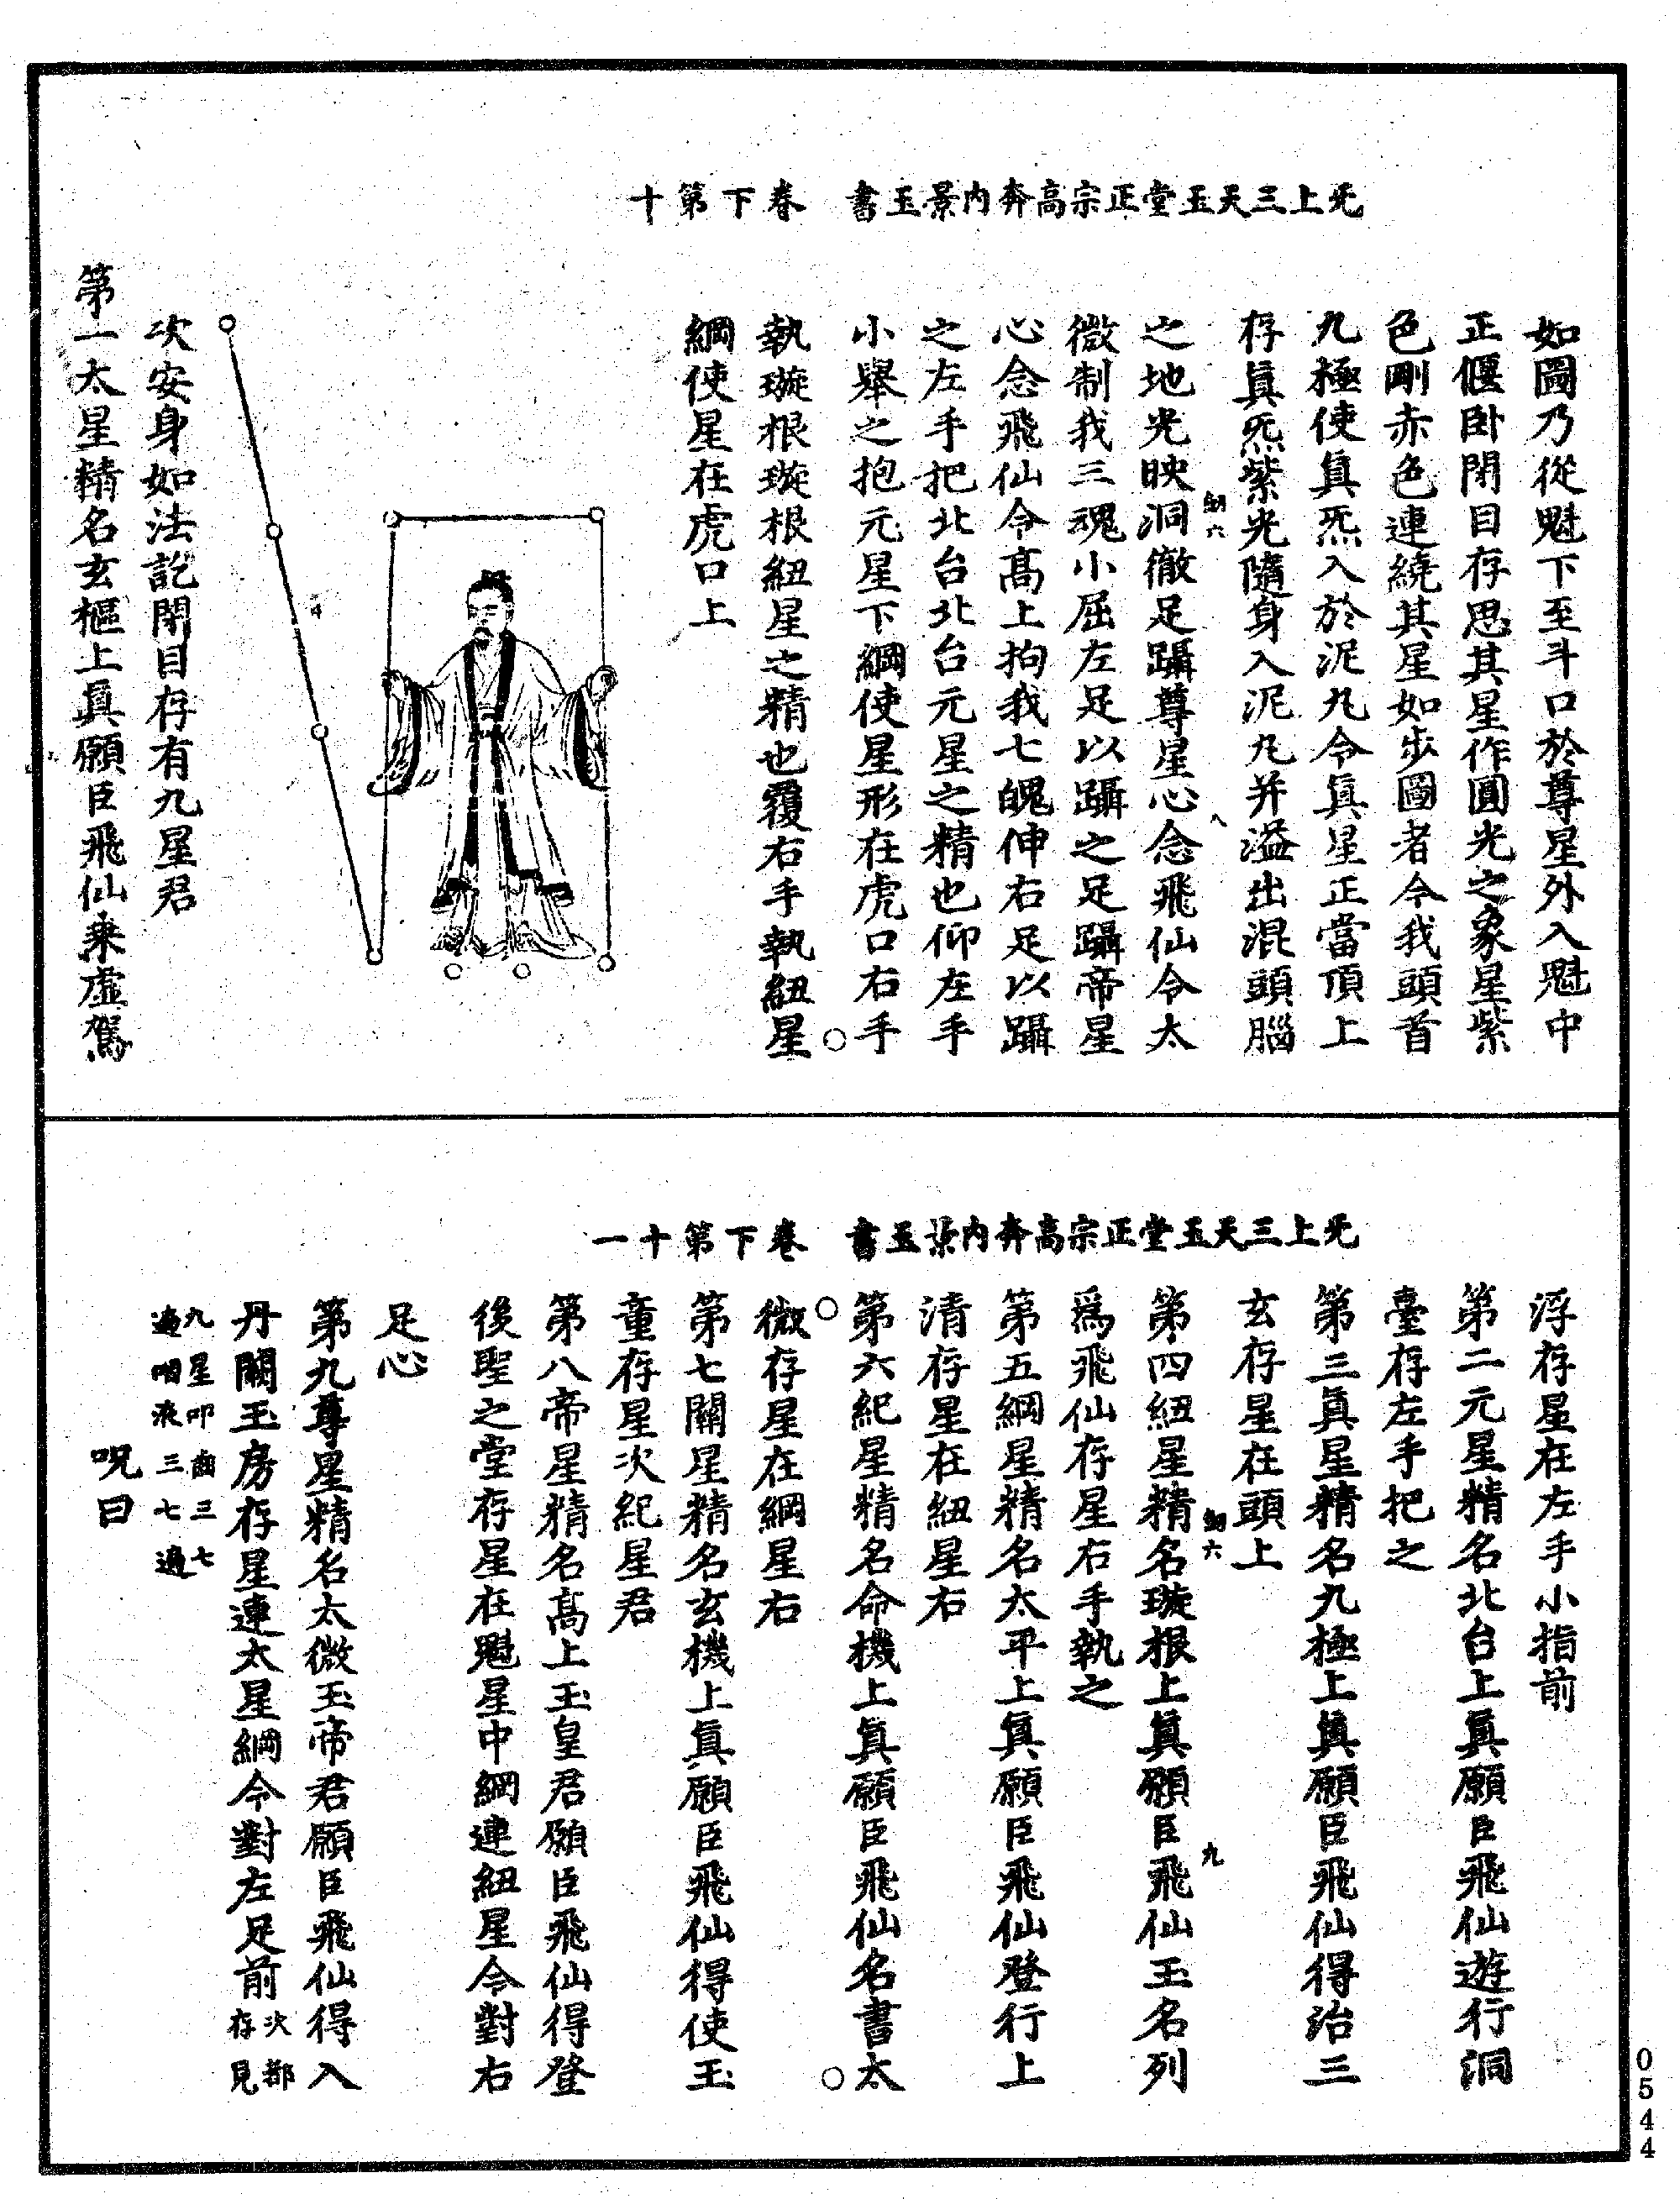 旡上三天玉堂正宗高奔内景玉書　卷下第十
如圖乃從魁下至斗口於尊星外入魁中
正偃卧閉目存思其星作圓光之象星紫
色剛赤色連繞其星如步圖者令我頭首
九極使眞炁入於泥丸令眞星正當頂上
存眞炁紫光隨身入泥丸并溢出混頭腦
六　八
之地光映洞徹足躡尊星心念飛仙令太
微制我三魂小屈左足以躡之足躡帝星
心念飛仙令髙上拘我七魄伸右足以躡
之左手把北台北台元星之精也仰左手
小舉之抱元星下綱使星形在虎口右手
執璇根璇根紐星之精也覆右手執紐星
綱使星在虎口上
次安身如法訖閉目存有九星君
第一太星精名玄樞上眞願臣飛仙乗虛駕
旡上三天玉堂正宗高奔内景玉書　卷下第十一
浮存星在左手小指前
第二元星精名北台上眞願臣飛仙遊行洞
臺存左手把之
第三眞星精名九極上眞願臣飛仙得治三
玄存星在頭上
六　九
第四紐星精名璇根上眞願臣飛仙玉名列
爲飛仙存星右手執之
第五綱星精名太平上眞願臣飛仙登行上
清存星在紐星右
第六紀星精名命機上眞願臣飛仙名書太
微存星在綱星右
第七關星精名玄機上眞願臣飛仙得使玉
童存星次紀星君
第八帝星精名髙上玉皇君願臣飛仙得登
後聖之堂存星在魁星中綱連紐星令對右
足心
第九尊星精名太微玉帝君願臣飛仙得入
丹關玉房存星連太星綱令對左足前次都存見
九星叩齒三七遍咽液三七遍
呪曰
0544